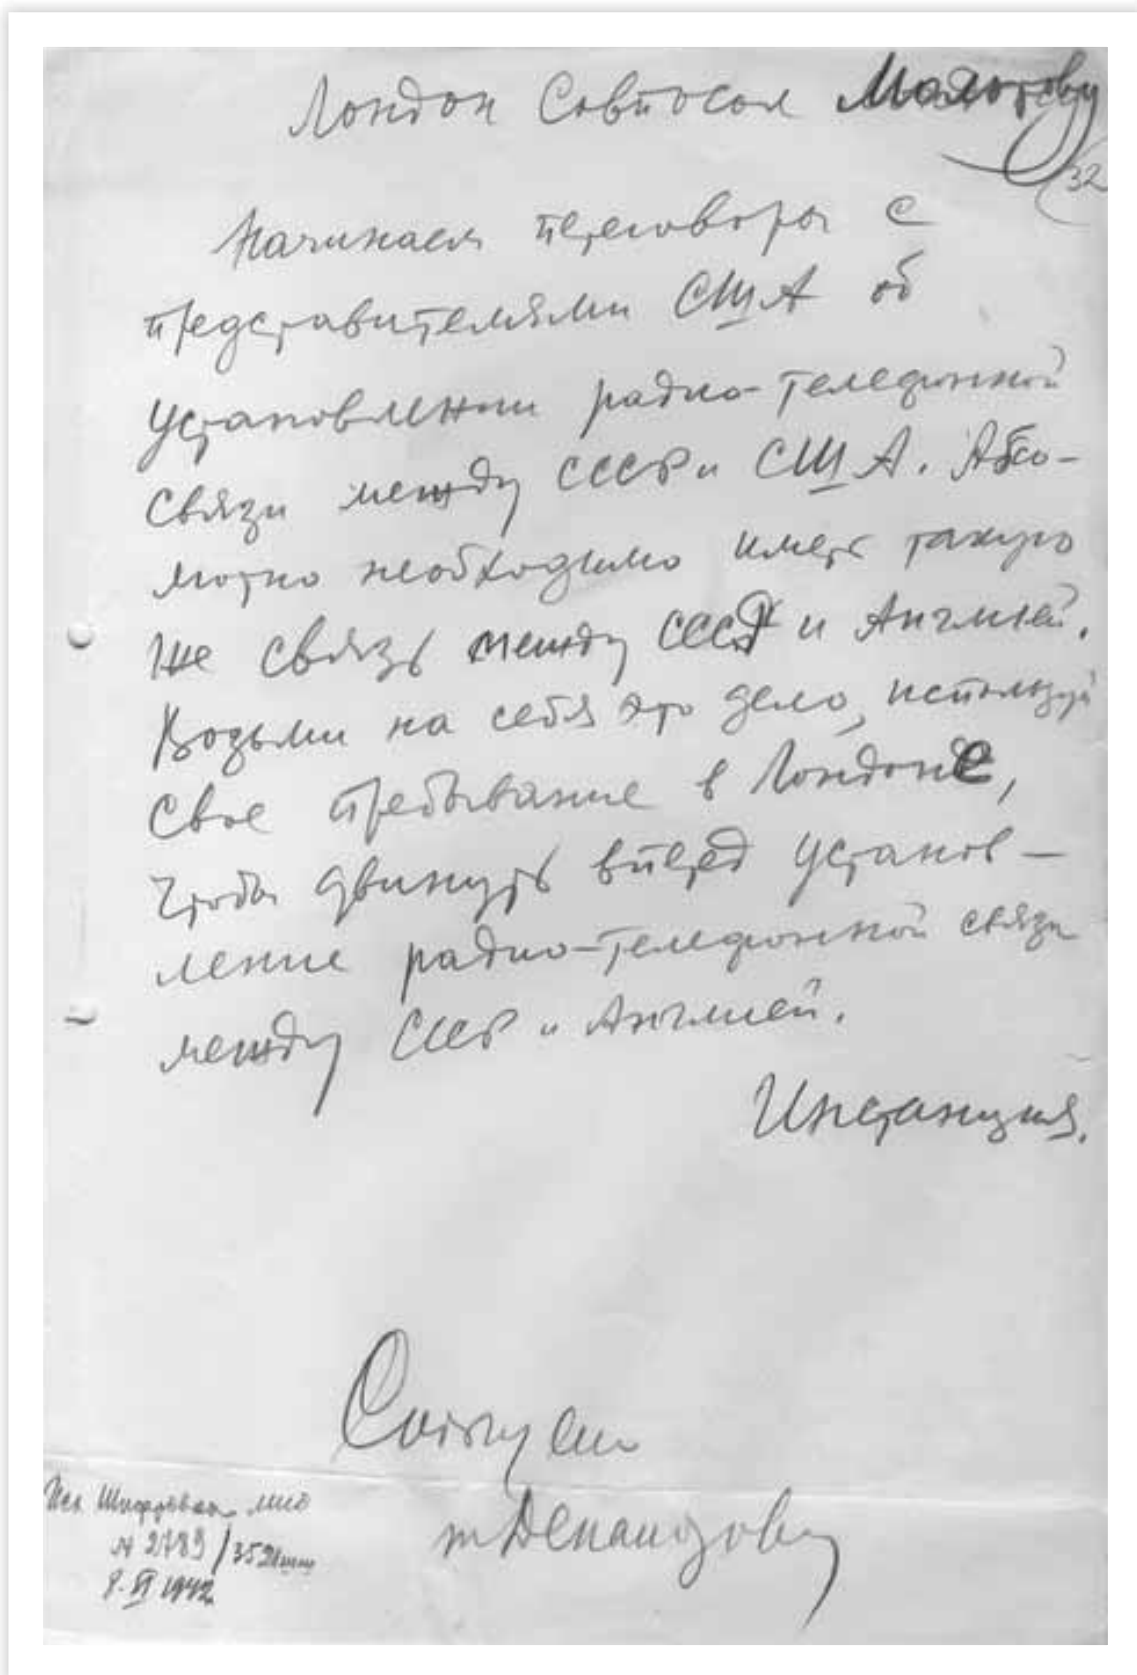 Лондон Совпосол Молотову
32
Начинаем переговоры с
представителями США об
установлении радио-телефонной
связи между СССР и США. Абсо-
лютно необходимо иметь такую
же связь между СССР и Англией.
Возьми на себя это дело, используй
свое пребывание в Лондоне,
чтобы двинуть вперед установ-
ление радио-телефонной связи
между СССР и Англией.
Инстанция.
т Деканозову
Шифровка
N 2789/352
8.VI 1942